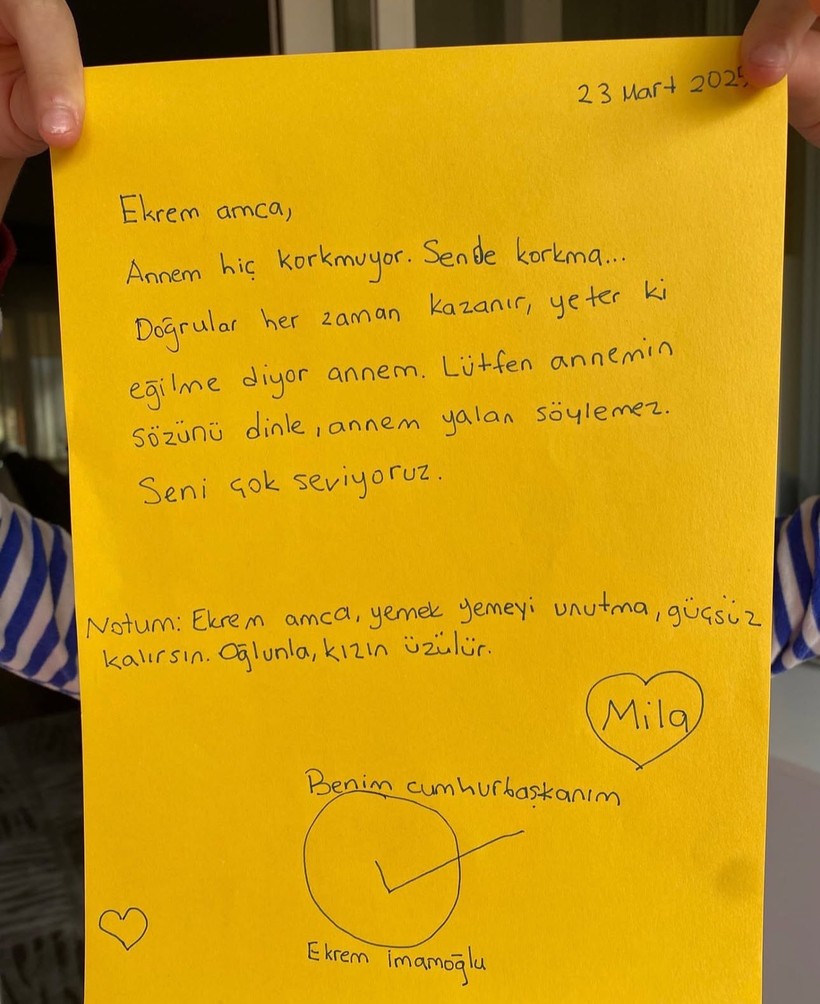 23 Mart 2025
Ekrem amca,
Annem hiç korkmuyor. Sende korkma...
Doğrular her zaman kazanır, yeter ki
eğilme diyor annem. Lütfen annemin
sözünü dinle, annem yalan söylemez.
Seni çok seviyoruz.
Notum: Ekrem amca, yemek yemeyi unutma, güçsüz
kalırsın. Oğlunla, kızın üzülür.
Mila
Benim cumhurbaşkanım
Ekrem imamoğlu